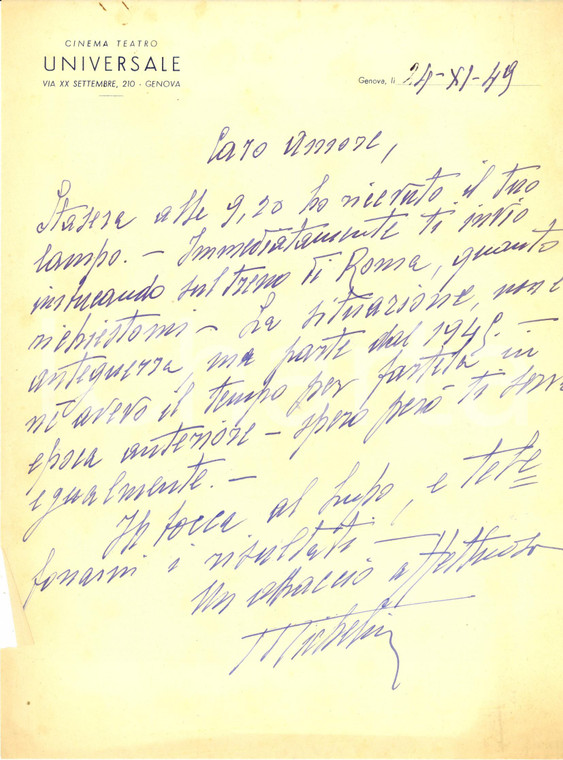 CINEMA TEATRO
UNIVERSALE
VIA XX SETTEMBRE, 210 - GENOVA
Genova, li 24-XI-49
Caro Amore,
Stasera alle 9,20 ho ricevuto il tuo
lampo. - Immediatamente ti invio
imbucando sul treno di Roma, quanto
richiestomi - La situazione, non è
anteguerra, ma parte dal 1945. -
nè avevo il tempo per fartela in
epoca anteriore - spero però ti serva
egualmente. -
In bocca al Lupo, e tele=
fonami i risultati -
Un abbraccio affettuoso